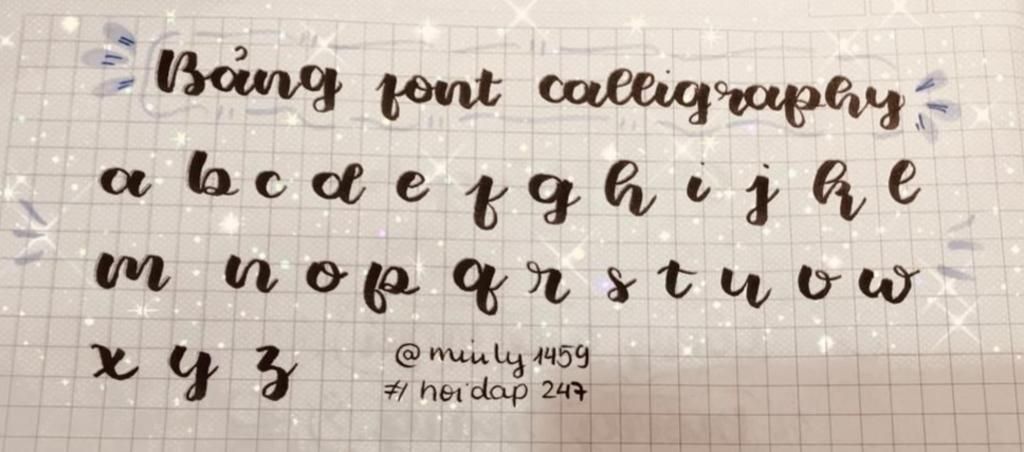 Bảng font calligraphy
a b c d e f g h i j k l
m n o p q r s t u v w
x y z
@miuly1459
#hoidap 247